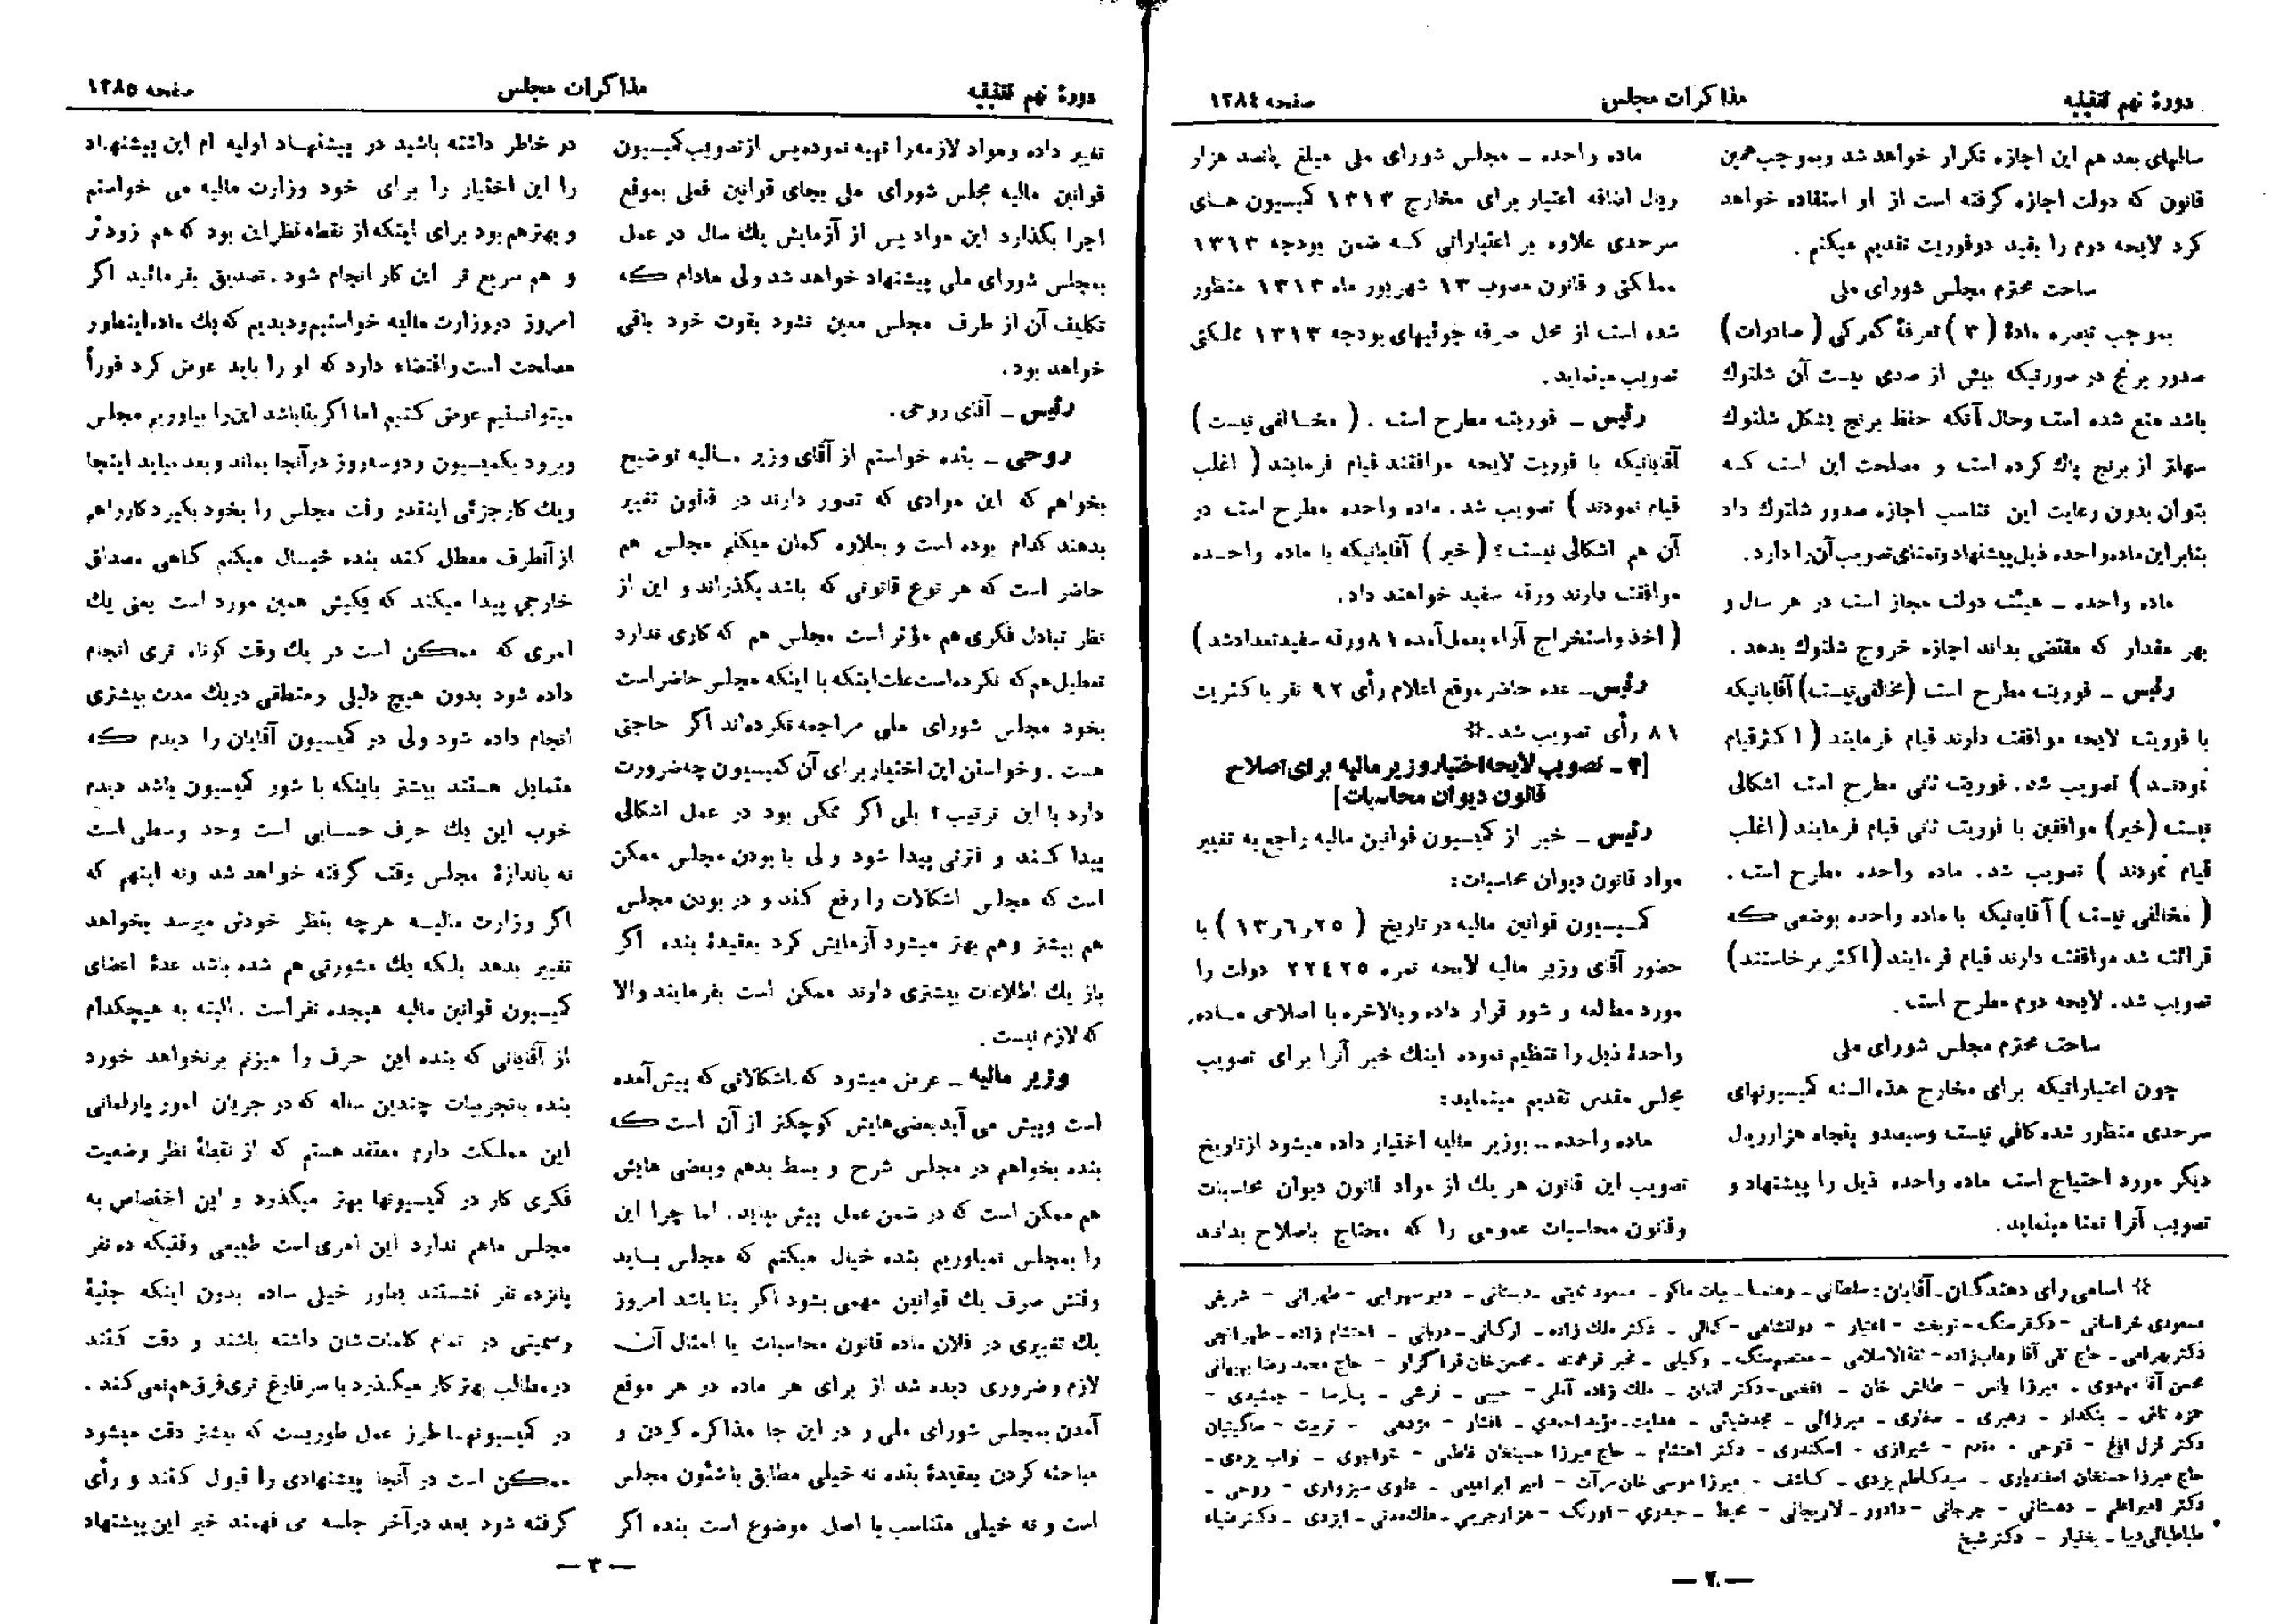 دورهٔ نهم تقنینیه
مذاکرات مجلس
صفحه ۱۲۸٤
سالهای بعد هم این اجازه تکرار خواهد شد وبموجب همین
قانون که دولت اجازه گرفته است از او استفاده خواهد
کرد لایحه دوم را بقید دوفوریت تقدیم میکنم .
ساحت محترم مجلس شورای ملی
بموجب تبصره مادهٔ ( ۳ ) تعرفهٔ گمرکی ( صادرات )
صدور برنج در صورتیکه بیش از صدی بیست آن شلتوك
باشد منع شده است وحال آنکه حفظ برنج بشکل شلتوك
سهلتر از برنج پاك کرده است و مصلحت این است کـه
بتوان بدون رعایت این تناسب اجازه صدور شلتوك داد
بنابراین ماده‌واحده ذیل‌پیشنهاد وتمنای تصویب آن‌را دارد.
ماده واحده ـ هیئت دولت مجاز است در هر سال و
بهر مقدار که مقتضی بداند اجازه خروج شلتوك بدهد .
رئیس ـ فوریت مطرح است (مخالفی نیست) آقایانیکه
با فوریت لایحه موافقت دارند قیام فرمایند ( اکثر قیام
نمودنـد ) تصویب شد. فوریت ثانی مطرح است اشکالی
نیست (خیر) موافقین با فوریت ثانی قیام فرمایند (اغلب
قیام نمودند ) تصویب شد. ماده واحده مطرح است .
( مخالفی نیست ) آقایانیکه با ماده واحده بوضعی که
قرائت شد موافقت دارند قیام فرمایند (اکثر برخاستند)
تصویب شد. لایحه دوم مطرح است.
ساحت محترم مجلس شورای ملی
چون اعتباراتیکه برای مخارج هذه السنه کمیسیونهای
سرحدی منظور شده کافی نیست وسیصدو پنجاه هزارریال
دیگر مورد احتیاج است ماده واحده ذیل را پیشنهاد و
تصویب آنرا تمنا مینماید.
ماده واحده ـ مجلس شورای ملی مبلغ پانصد هزار
ریال اضافه اعتبار برای مخارج ۱۳۱۳ کمیسیون هـای
سرحدی علاوه بر اعتباراتی کـه ضمن بودجه ۱۳۱۳
مملکتی و قانون مصوب ۱۳ شهریور ماه ۱۳۱۳ منظور
شده است از محل صرفه جوئیهای بودجه ۱۳۱۳ مملکتی
تصویب مینماید.
رئیس ـ فوریت مطرح است . ( مخـالفی نیست )
آقایانیکه با فوریت لایحه موافقتند قیام فرمایند ( اغلب
قیام نمودند ) تصویب شد. ماده واحده مطرح است در
آن هم اشکالی نیست؟ ( خیر ) آقایانیکه با ماده واحـده
موافقت دارند ورقه سفید خواهند داد.
( اخذ واستخراج آراء بعمل‌آمده ۸۱ ورقه سفید تعداد شد )
رئیس ـ عده حاضر موقع اعلام رأی ۹۲ نفر با کثریت
۸۱ رأی تصویب شد.*
[۳ ـ تصویب لایحه اختیار وزیر مالیه برای اصلاح
قانون دیوان محاسبات]
رئیس ـ خبر از کمیسیون قوانین مالیه راجع به تغییر
مواد قانون دیوان محاسبات:
کمیسیون قوانین مالیه در تاریخ ( ۲۵ر٦ر۱۳ ) با
حضور آقای وزیر مالیه لایحه نمره ۲۲٤۲۵ دولت را
مورد مطالعه و شور قرار داده وبالاخره با اصلاحی مـاده
واحدهٔ ذیل را تنظیم نموده اینك خبر آنرا برای تصویب
مجلس مقدس تقدیم مینماید:
ماده واحده ـ بوزیر مالیه اختیار داده میشود ازتاریخ
تصویب این قانون هر یك از مواد قانون دیوان محاسبات
وقانون محاسبات عمومی را که محتاج باصلاح بدانـد
* اسامی رای دهندگان ـ آقایان: سلطانی ـ رهنما ـ بیات ماکو ـ مسعود ثابتی ـ دبستانی ـ دبیرسهرابی ـ طهرانی ـ شریفی
مسعودی خراسانی ـ دکتر سنگ ـ نوبخت ـ اعتبار ـ دولتشاهی ـ کمالی ـ دکتر ملك زاده ـ ارگانی ـ دربانی ـ احتشام زاده ـ طهرانچی
دکتر بهرامی ـ حاج تقی آقا وهاب‌زاده ـ ثقةالاسلامی ـ معتصم سنگ ـ وکیلی ـ مخبر فرهمند ـ محسن خان قراگزلو ـ حاج محمد رضا بهبهانی
محسن آقا مهدوی ـ میرزا یانس ـ طالش خان ـ افخمی ـ دکتر لقمان ـ ملك زاده آملی ـ حبیبی ـ فرشی ـ پـارسا ـ جمشیدی ـ
حمزه تاش ـ بنکدار ـ رهبری ـ صفاری ـ میرزائی ـ مجدضیائی ـ هدایت ـ مؤید احمدی ـ افشار ـ مژدهی ـ تربیت ـ ساگینیان
دکتر قزل ایاغ ـ فتوحی ـ مقدم ـ شیرازی ـ اسکندری ـ دکتر احتشام ـ حاج میرزا حسینخان فاطمی ـ خواجوی ـ نواب یزدی ـ
حاج میرزا حسنخان اسفندیاری ـ سیدکاظم یزدی ـ کـاشف ـ میرزا موسی خان مرآت ـ امیر ابراهیمی ـ علوی سبزواری ـ روحی ـ
دکتر امیراعلم ـ دهستانی ـ جرجانی ـ دادور ـ لاریجانی ـ محیط ـ حیدری ـ اورنگ ـ هزارجریبی ـ ملك‌مدنی ـ ایزدی ـ دکتر ضیاء
طباطبائی‌دیبا ـ بختیار ـ دکتر شیخ
— ۲ —
دورهٔ نهم تقنینیه
مذاکرات مجلس
صفحه ۱۲۸۵
تغییر داده ومواد لازمه‌را تهیه نموده‌پس ازتصویب‌کمیسیون
قوانین مالیه مجلس شورای ملی بجای قوانین فعلی بموقع
اجرا بگذارد این مواد پس از آزمایش یك سال در عمل
بمجلس شورای ملی پیشنهاد خواهد شد ولی مادام که
تکلیف آن از طرف مجلس معین نشود بقوت خود باقی
خواهد بود.
رئیس ـ آقای روحی.
روحی ـ بنده خواستم از آقای وزیر مـالیه توضیح
بخواهم که این موادی که تصور دارند در قانون تغییر
بدهند کدام بوده است و بعلاوه گمان میکنم مجلس هم
حاضر است که هر نوع قانونی که باشد بگذراند و این از
نظر تبادل فکری هم مؤثر است مجلس هم که کاری ندارد
تعطیل هم که نکرده‌است علت اینکه با اینکه مجلس حاضر است
بخود مجلس شورای ملی مراجعه نکرده‌اند اگر حاجتی
هست . وخواستن این اختیار برای آن کمیسیون چه‌ضرورت
دارد با این ترتیب ؟ بلی اگر ممکن بود در عمل اشکالی
پیدا کـند و فترتی پیدا شود ولی با بودن مجلس ممکن
است که مجلس اشکالات را رفع کند و در بودن مجلس
هم بیشتر وهم بهتر میشود آزمایش کرد بعقیدهٔ بنده اگر
باز یك اطلاعات بیشتری دارند ممکن است بفرمایند والا
که لازم نیست .
وزیر مالیه ـ عرض میشود که اشکالاتی که پیش‌آمده
است وپیش می آید بعضی‌هایش کوچکتر از آن است که
بنده بخواهم در مجلس شرح و بسط بدهم وبعضی هایش
هم ممکن است که در ضمن عمل پیش بیاید. اما چرا این
را بمجلس نمیاوریم بنده خیال میکنم که مجلس بـاید
وقتش صرف یك قوانین مهمی بشود اگر بنا باشد امروز
یك تغییری در فلان ماده قانون محاسبات یا امثال آن
لازم وضروری دیده شد از برای هر ماده در هر موقع
آمدن بمجلس شورای ملی و در این جا مذاکره کردن و
مباحثه کردن بعقیدهٔ بنده نه خیلی مطابق باشئون مجلس
است و نه خیلی متناسب با اصل موضوع است بنده اگر
در خاطر داشته باشید در پیشنهـاد اولیه ام این پیشنهـاد
را این اختیار را برای خود وزارت مالیه می خواستم
و بهتر هم بود برای اینکه از نقطه نظر این بود که هم زود تر
و هم سریع تر این کار انجام شود. تصدیق بفرمائید اگر
امروز دروزارت مالیه خواستیم‌ودیدیم که یك ماده‌اینطور
مصلحت است واقتضاء دارد که او را باید عوض کرد فوراً
میتوانستیم عوض کنیم اما اگر بنا باشد این‌را بیاوریم مجلس
وبرود بکمیسیون ودوسه‌روز درآنجا بماند وبعد بیاید اینجا
ویك کارجزئی اینقدر وقت مجلس را بخود بگیرد کارراهم
از آنطرف معطل کند بنده خیـال میکنم گاهی مصداق
خارجی پیدا میکند که یکیش همین مورد است یعنی یك
امری که ممکن است در یك وقت کوتاه تری انجام
داده شود بدون هیچ دلیلی ومنطقی دریك مدت بیشتری
انجام داده شود ولی در کمیسیون آقایان را دیدم که
متمایل هستند بیشتر باینکه با شور کمیسیون باشد دیدم
خوب این یك حرف حسـابی است وحد وسطی است
نه باندازهٔ مجلس وقت گرفته خواهد شد ونه اینهم که
اگر وزارت مالیـه هرچه بنظر خودش میرسد بخواهد
تغییر بدهد بلکه یك مشورتی هم شده باشد عدهٔ اعضای
کمیسیون قوانین مالیه هیجده نفراست .البته به هیچکدام
از آقایانی که بنده این حرف را میزنم برنخواهد خورد
بنده باتجربیات چندین ساله که در جریان امور پارلمانی
این مملکت دارم معتقد هستم که از نقطهٔ نظر وضعیت
فکری کار در کمیسیونها بهتر میگذرد و این اختصاص به
مجلس ماهم ندارد این امری است طبیعی وقتیکه ده نفر
پانزده نفر نشستند بطور خیلی ساده بدون اینکه جنبهٔ
رسمیتی در تمام کلمات‌شان داشته باشند و دقت کنند
در مطالب بهتر کار میگـذرد با سر فارغ تری فرق هم نمی کند .
در کمیسیونهـا طرز عمل طوریست که بیشتر دقت میشود
ممکن است در آنجا پیشنهادی را قبول کنند و رأی
گرفته شود بعد درآخر جلسه می فهمند خیر این پیشنهاد
— ۳ —